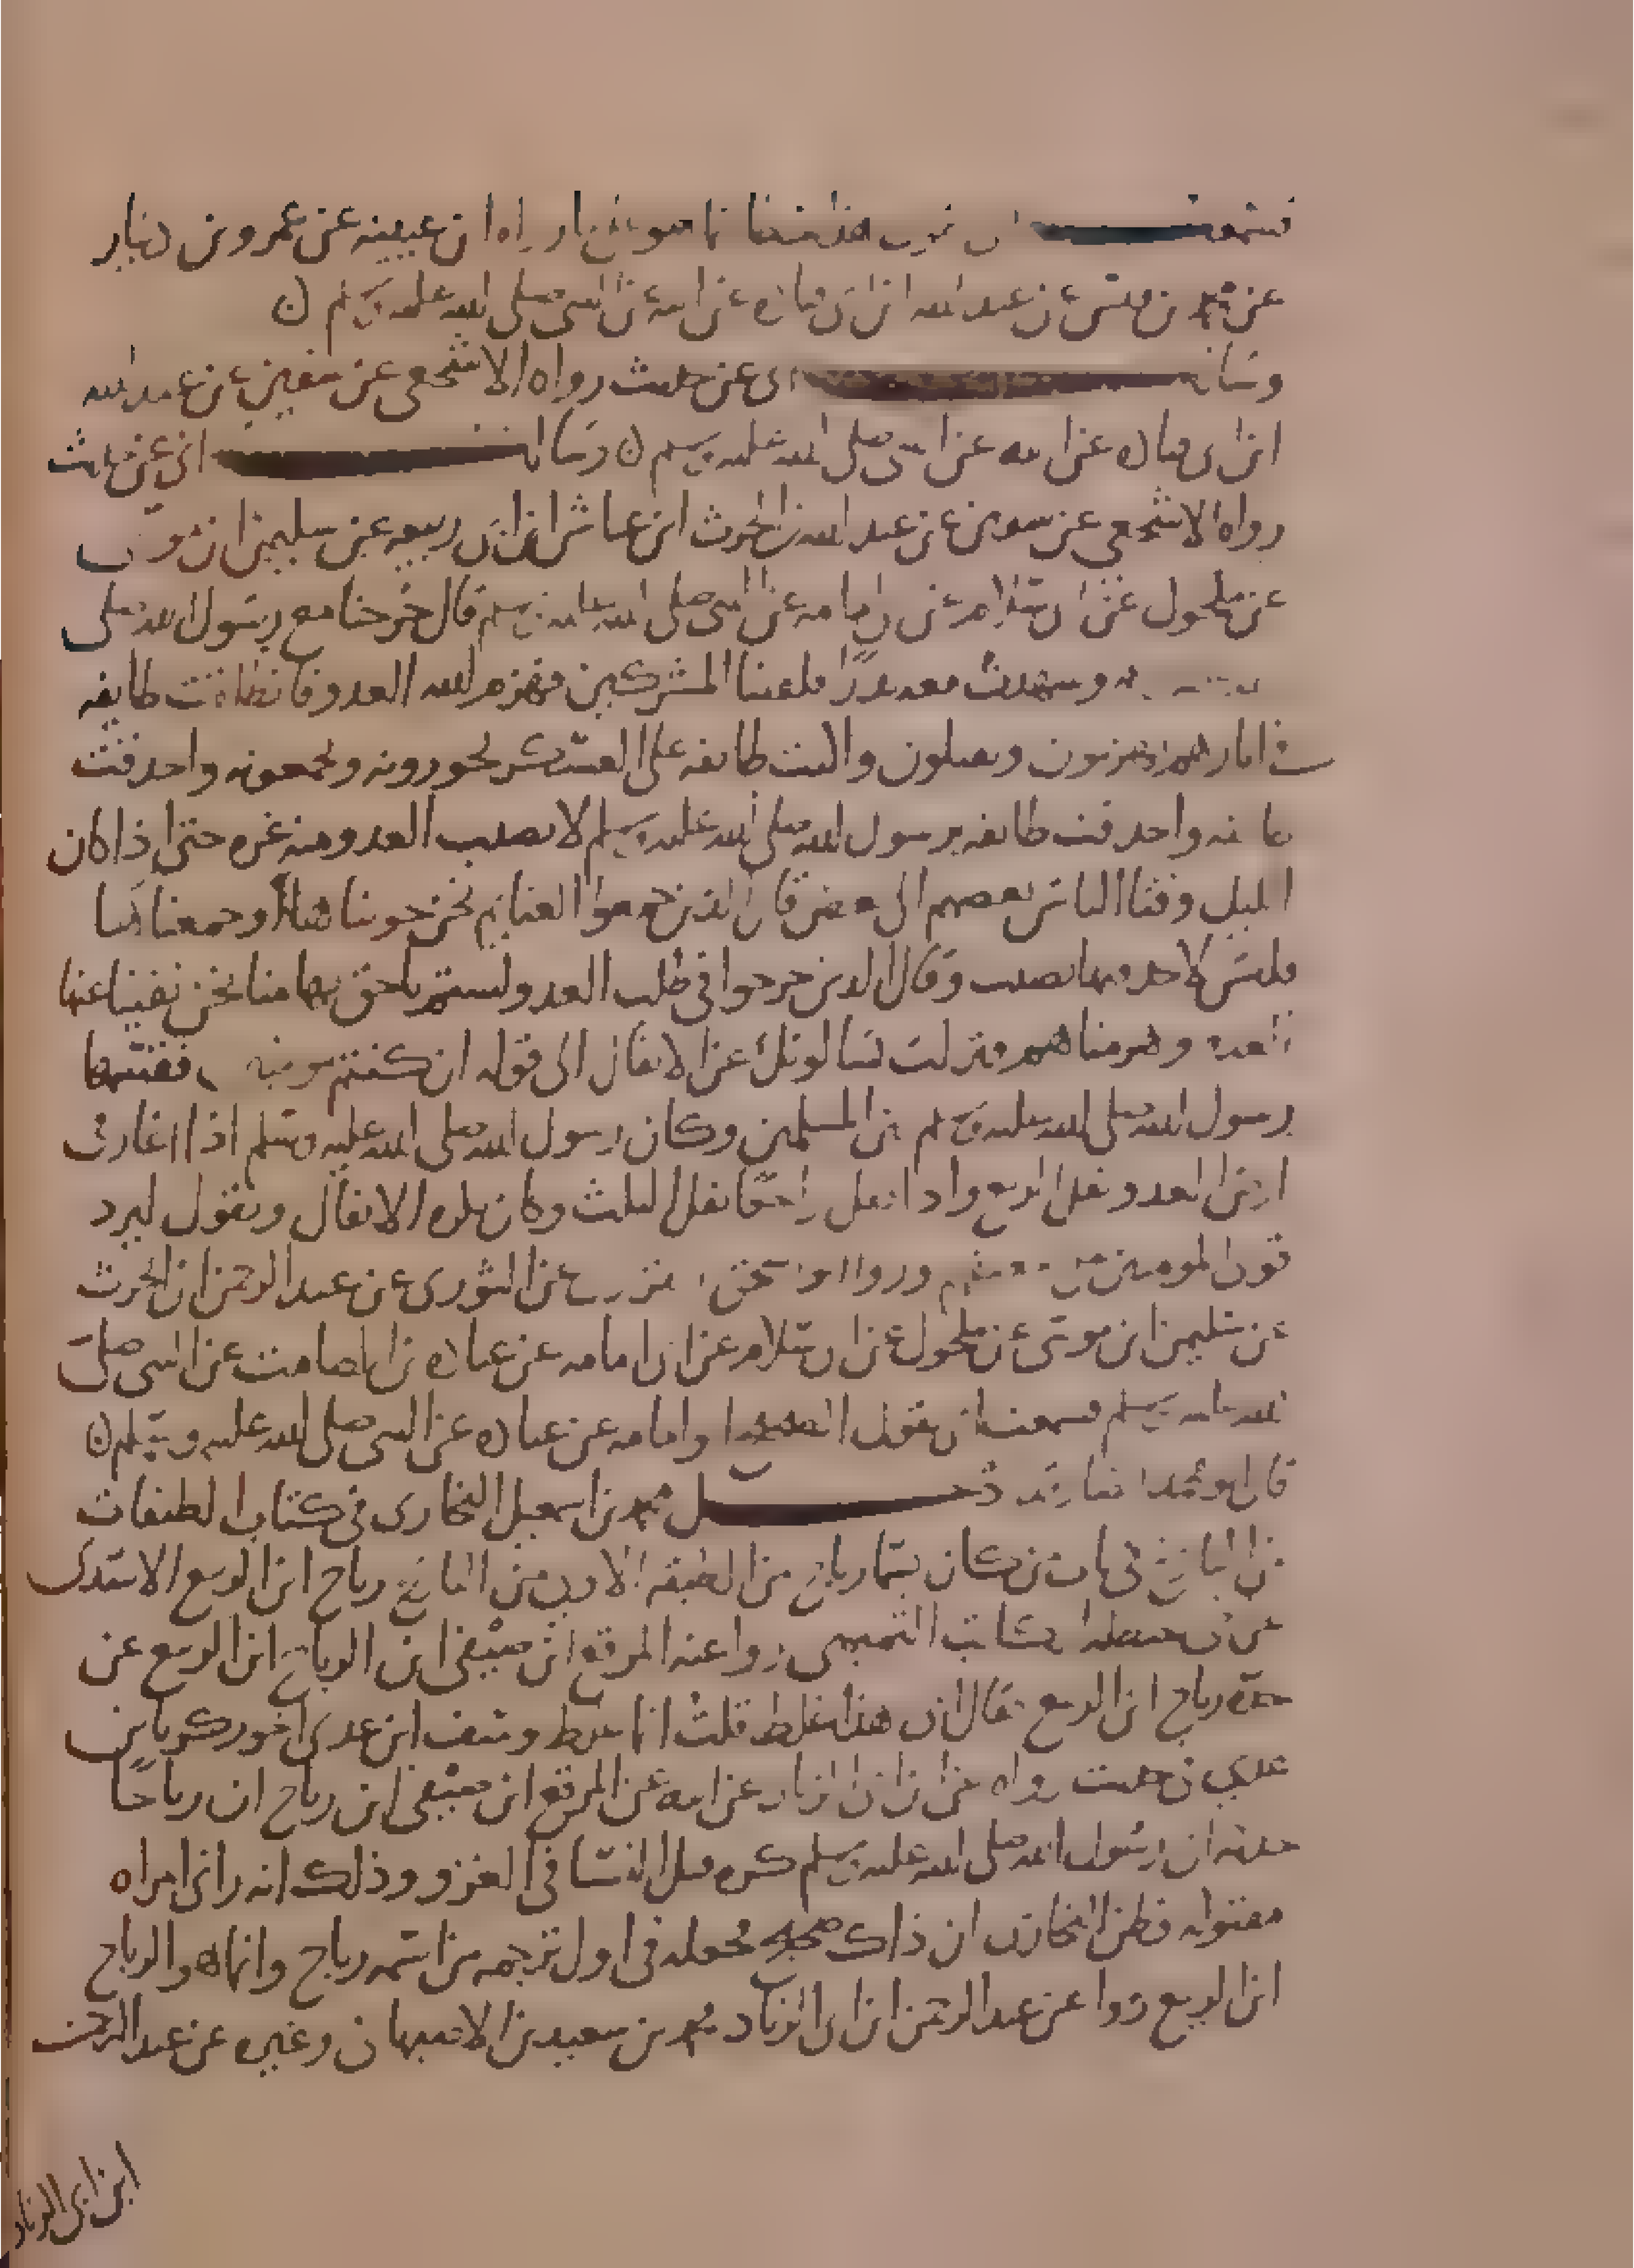 فسمعت ابى يقول هذا خطأ انما هو ما رواه ابن عيينه عن عمرو بن دينار
عن محمد بن قيس عن عبد الله ابن ابى قتاده عن ابيه عن النبى صلى الله عليه وسلم ن
وسالت ابى عن حديث رواه الاشجعي عن سفين عن عبد الله
ابن ابى قتاده عن ابيه عن النبى صلى الله عليه وسلم ن وسالت ابى عن حديث
رواه الاشجعي عن سفين عن عبد الله بن الحرث ابن عياش ابن ابى ربيعه عن سليمن ابن موسى
عن مكحول عن ابى سلام عن ابى امامه عن النبى صلى الله عليه وسلم قال خرجنا مع رسول الله صلى
وشهدت معه بدرا فلقينا المشركين فهزم الله العدو فانطلقت طايفه
فى اثارهم يهزمون ويقتلون واكبت طايفه على العسكر يحوزونه ويجمعونه واحدقت
طايفه واحدقت طايفه برسول الله صلى الله عليه وسلم لا يصيب العدو منه غره حتى اذا كان
الليل وفا الناس بعضهم الى بعض قال الذين جمعوا الغنايم نحن حويناها وجمعناها
فليس لاحد فيها نصيب وقال الذين خرجوا في طلب العدو لستم باحق بها منا نحن نفينا عنها
العدو وهزمناهم فنزلت يسالونك عن الانفال الى قوله ان كنتم مومنين فقسمها
رسول الله صلى الله عليه وسلم بين المسلمين وكان رسول الله صلى الله عليه وسلم اذا اغار فى
ارض العدو نفل الربع واذا اقبل راجعا نفل الثلث وكان يكره الانفال ويقول ليرد
قوى المومنين على ضعيفهم وروا ابو اسحق الفزارى عن الثورى عن عبد الرحمن ابن الحرث
عن سليمن ابن موسى عن مكحول عن ابى سلام عن ابى امامه عن عباده بن الصامت عن النبى صلى
الله عليه وسلم فسمعت ابى يقول الصحيح ابو امامه عن عباده عن النبى صلى الله عليه وسلم ن
قال ابو محمد دخل محمد بن اسمعيل البخارى فى كتاب الطبقات
من التاريخ فى باب من كان يسما رباح من الطبقه الاولى من التاريخ رباح ابن الربيع الاسيدى
عن حنظله الكاتب التميمى روا عنه المرقع ابن صيفى ابن الرباح ابن الربيع عن
جده رباح ابن الربيع فقال ابى هذا غلط قلت انما غلط يوسف ابن عدى اخو زكريا بن
عدي فى حديث رواه عن ابن ابى الزناد عن ابيه عن المرقع ابن صيفى ابن رباح ان رباحا
حدثه ان رسول الله صلى الله عليه وسلم كره قتل النسا فى الغزو وذلك انه راى امراه
مقتوله فظن البخارى ان ذاك صحيح فجعله فى اول ترجمه من اسمه رباح وانما هو الرباح
ابن الربيع روا عن عبد الرحمن ابن ابى الزناد محمد بن سعيد بن الاصبهانى وغيره عن عبد الرحمن
ابن ابى الزناد